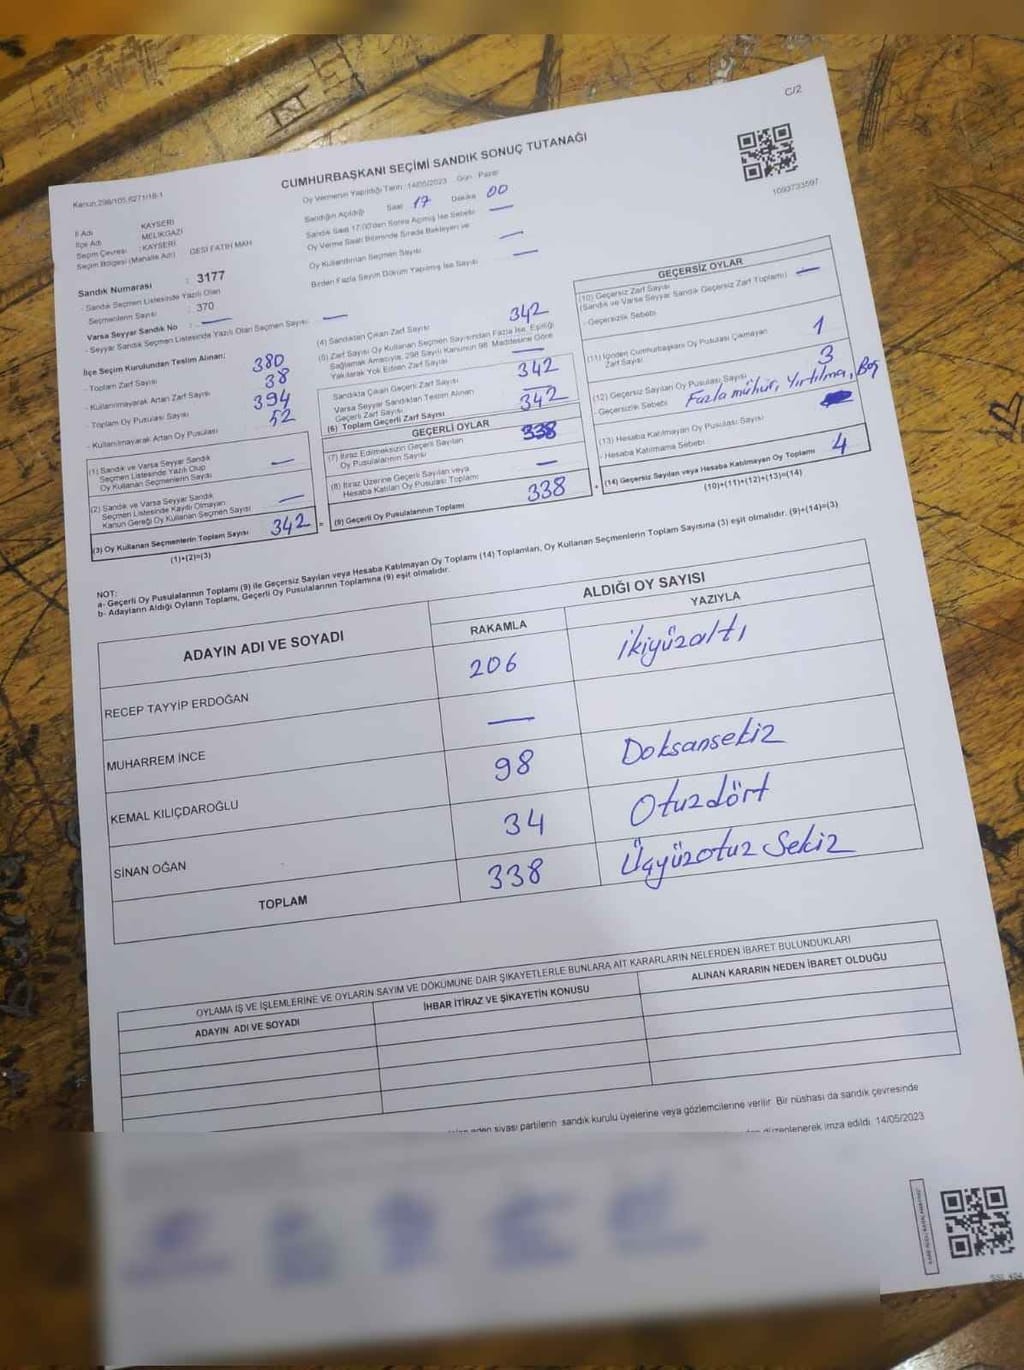 C/2
CUMHURBAŞKANI SEÇİMİ SANDIK SONUÇ TUTANAĞI
Kanun 298/105,6271/18-1
1093733597
Oy Vermenin Yapıldığı Tarih : 14/05/2023 Gün : Pazar
Sandığın Açıldığı Saat 17 Dakika 00
Sandık Saat 17:00'den Sonra Açılmış İse Sebebi —
Oy Verme Saati Bitiminde Sırada Bekleyen ve
Oy Kullandırılan Seçmen Sayısı —
Birden Fazla Sayım Döküm Yapılmış İse Sayısı —
İl Adı : KAYSERİ
İlçe Adı : MELİKGAZİ
Seçim Çevresi : KAYSERİ
Seçim Bölgesi (Mahalle Adı) : GESİ FATİH MAH
Sandık Numarası : 3177
- Sandık Seçmen Listesinde Yazılı Olan
Seçmenlerin Sayısı : 370
Varsa Seyyar Sandık No : —
- Seyyar Sandık Seçmen Listesinde Yazılı Olan Seçmen Sayısı : —
İlçe Seçim Kurulundan Teslim Alınan;
- Toplam Zarf Sayısı 380
- Kullanılmayarak Artan Zarf Sayısı 38
- Toplam Oy Pusulası Sayısı 394
- Kullanılmayarak Artan Oy Pusulası 52
(1) Sandık ve Varsa Seyyar Sandık
Seçmen Listesinde Yazılı Olup
Oy Kullanan Seçmenlerin Sayısı —
(2) Sandık ve Varsa Seyyar Sandık
Seçmen Listesinde Kayıtlı Olmayan
Kanun Gereği Oy Kullanan Seçmen Sayısı —
(3) Oy Kullanan Seçmenlerin Toplam Sayısı 342
(1)+(2)=(3)
(4) Sandıktan Çıkan Zarf Sayısı 342
(5) Zarf Sayısı Oy Kullanan Seçmen Sayısından Fazla İse, Eşitliği
Sağlamak Amacıyla, 298 Sayılı Kanunun 98. Maddesine Göre
Yakılarak Yok Edilen Zarf Sayısı —
Sandıkta Çıkan Geçerli Zarf Sayısı 342
Varsa Seyyar Sandıktan Teslim Alınan
Geçerli Zarf Sayısı —
(6) Toplam Geçerli Zarf Sayısı 342
GEÇERLİ OYLAR
(7) İtiraz Edilmeksizin Geçerli Sayılan
Oy Pusulalarının Sayısı 338
(8) İtiraz Üzerine Geçerli Sayılan veya
Hesaba Katılan Oy Pusulası Toplamı —
(9) Geçerli Oy Pusulalarının Toplamı 338
GEÇERSİZ OYLAR
(10) Geçersiz Zarf Sayısı
(Sandık ve Varsa Seyyar Sandık Geçersiz Zarf Toplamı) —
- Geçersizlik Sebebi
(11) İçinden Cumhurbaşkanı Oy Pusulası Çıkmayan
Zarf Sayısı 1
(12) Geçersiz Sayılan Oy Pusulası Sayısı 3
- Geçersizlik Sebebi Fazla mühür, Yırtılma, Boş
(13) Hesaba Katılmayan Oy Pusulası Sayısı
- Hesaba Katılmama Sebebi
(14) Geçersiz Sayılan veya Hesaba Katılmayan Oy Toplamı 4
(10)+(11)+(12)+(13)=(14)
NOT:
a- Geçerli Oy Pusulalarının Toplamı (9) ile Geçersiz Sayılan veya Hesaba Katılmayan Oy Toplamı (14) Toplamları, Oy Kullanan Seçmenlerin Toplam Sayısına (3) eşit olmalıdır. (9)+(14)=(3)
b- Adayların Aldığı Oyların Toplamı, Geçerli Oy Pusulalarının Toplamına (9) eşit olmalıdır.
ADAYIN ADI VE SOYADI
ALDIĞI OY SAYISI
RAKAMLA YAZIYLA
RECEP TAYYİP ERDOĞAN 206 ikiyüzaltı
MUHARREM İNCE —
KEMAL KILIÇDAROĞLU 98 Doksansekiz
SİNAN OĞAN 34 Otuzdört
TOPLAM 338 Üçyüzotuz Sekiz
OYLAMA İŞ VE İŞLEMLERİNE VE OYLARIN SAYIM VE DÖKÜMÜNE DAİR ŞİKAYETLERLE BUNLARA AİT KARARLARIN NELERDEN İBARET BULUNDUKLARI
ADAYIN ADI VE SOYADI İHBAR İTİRAZ VE ŞİKAYETİN KONUSU ALINAN KARARIN NEDEN İBARET OLDUĞU
eden siyasi partilerin sandık kurulu üyelerine veya gözlemcilerine verilir. Bir nüshası da sandık çevresinde
düzenlenerek imza edildi. 14/05/2023